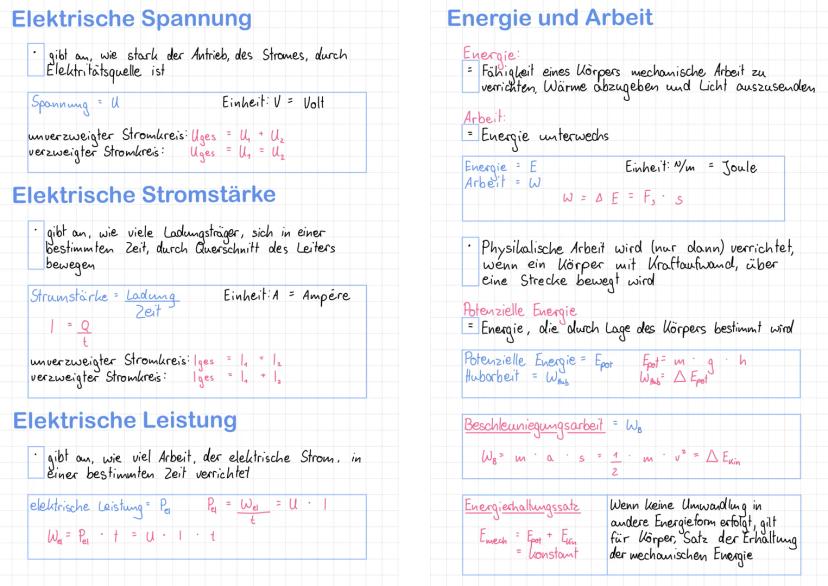 Elektrische Spannung
· gibt an, wie stark der Antrieb, des Stromes, durch
Elektritätsquelle ist
Spannung = U Einheit: V = Volt
unverzweigter Stromkreis: Uges = U₁ + U₂
verzweigter Stromkreis: Uges = U₁ = U₂
Elektrische Stromstärke
· gibt an, wie viele Ladungsträger, sich in einer
bestimmten Zeit, durch Querschnitt des Leiters
bewegen
Stromstärke = Ladung Einheit: A = Ampére
Zeit
I = Q
t
unverzweigter Stromkreis: Iges = I₁ = I₂
verzweigter Stromkreis: Iges = I₁ + I₂
Elektrische Leistung
· gibt an, wie viel Arbeit, der elektrische Strom, in
einer bestimmten Zeit verrichtet
elektrische Leistung = Pel Pel = Wel = U · I
t
Wel = Pel · t = U · I · t
Energie und Arbeit
Energie:
= Fähigkeit eines Körpers mechanische Arbeit zu
verrichten, Wärme abzugeben und Licht auszusenden
Arbeit:
= Energie unterwechs
Energie = E Einheit: N/m = Joule
Arbeit = W
W = Δ E = Fs · s
· Physikalische Arbeit wird (nur dann) verrichtet,
wenn ein Körper mit Kraftaufwand, über
eine Strecke bewegt wird
Potenzielle Energie
= Energie, die durch Lage des Körpers bestimmt wird
Potenzielle Energie = Epot Epot = m · g · h
Hubarbeit = WHub WHub = Δ Epot
Beschleuniegungsarbeit = WB
WB = m · a · s = 1/2 · m · v² = Δ Ekin
Energierhallungssatz
Emech = Epot + Ekin
= konstant
Wenn keine Umwandlung in
andere Energieform erfolgt, gilt
für Körper, Satz der Erhaltung
der mechanischen Energie